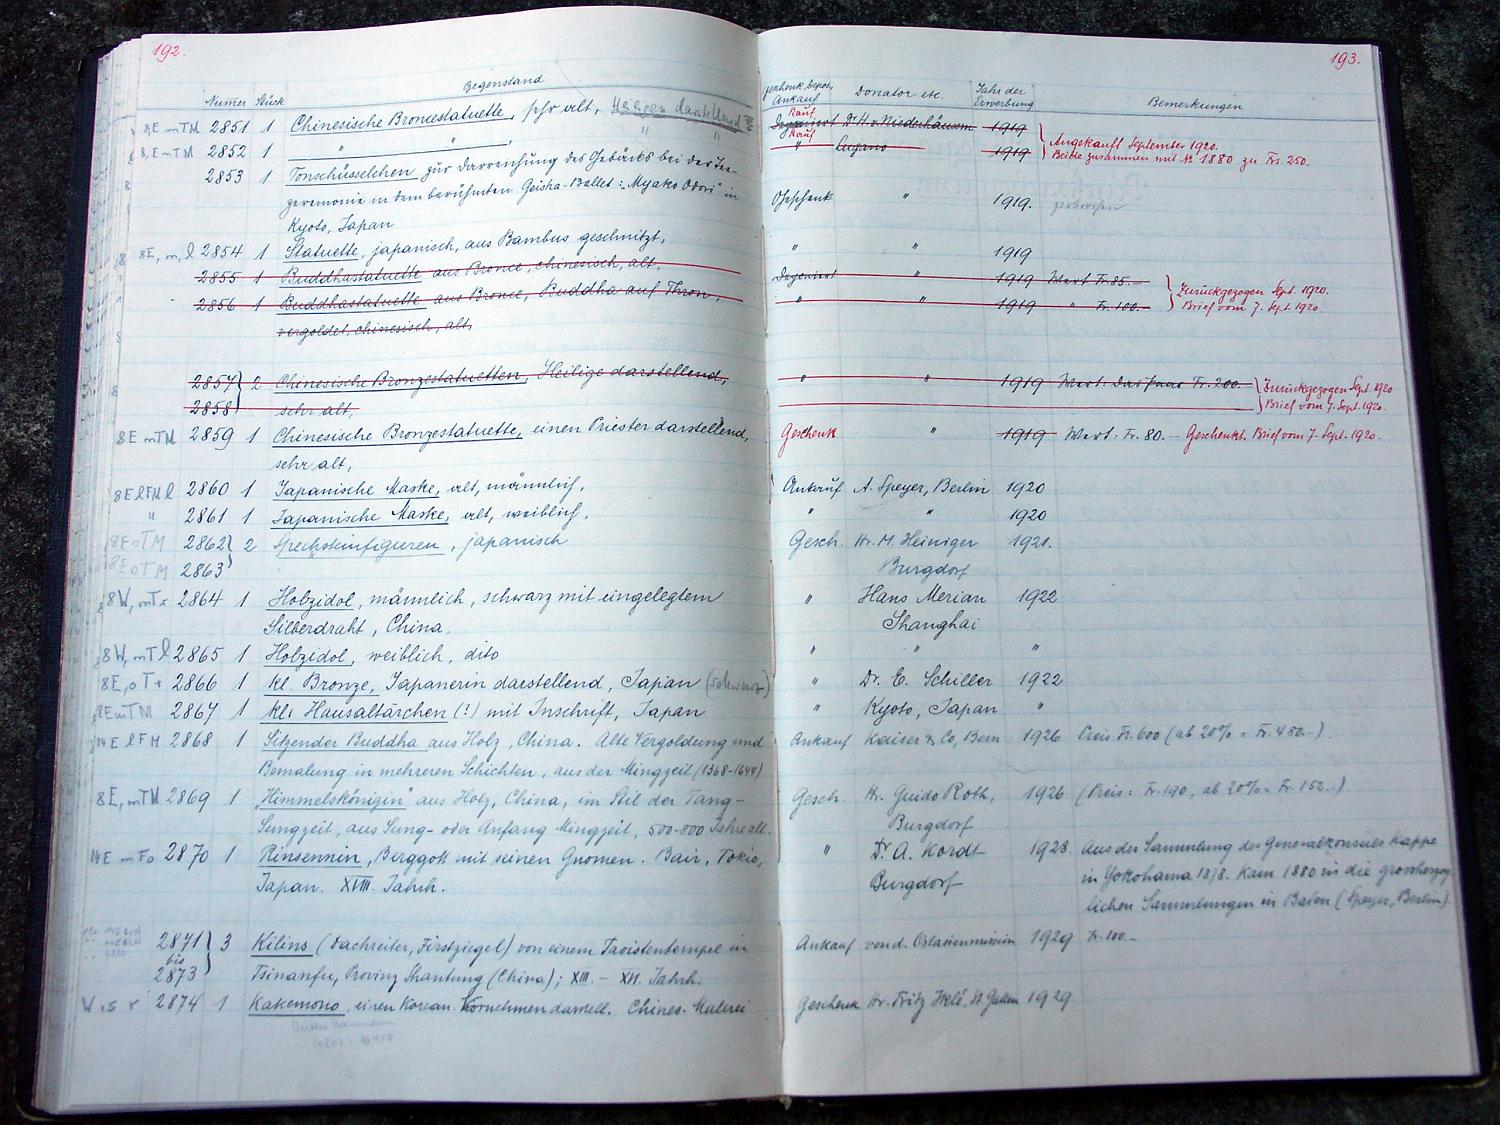 192.
Numer Stück Gegenstand
8E mTM 2851 1 Chinesische Broncestatuette, sehr alt, Heiligen darstellend
8,E mTM 2852 1 " " , " "
2853 1 Tonschüsselchen zur Darreichung des Gebäcks bei der Tee-
zeremonie in dem berühmten Geisha-Ballet: „Myako Odori" in
Kyoto, Japan
8E, m, l 2854 1 Statuette, japanisch, aus Bambus geschnitzt,
2855 1 Buddhastatuette aus Bronce, chinesisch, alt,
2856 1 Buddhastatuette aus Bronce, Buddha auf Thron,
vergoldet, chinesisch, alt,
2857 } 2 Chinesische Bronzestatuetten, Heilige darstellend,
2858 sehr alt,
8E mTM 2859 1 Chinesische Bronzestatuette, einen Priester darstellend,
sehr alt,
8E lFM l 2860 1 Japanische Maske, alt, männlich,
" 2861 1 Japanische Maske, alt, weiblich,
8E oTM 2862 } 2 Specksteinfiguren, japanisch
8E oTM 2863
8W, mT 2864 1 Holzidol, männlich, schwarz mit eingelegtem
Silberdraht, China,
8W, mT l 2865 1 Holzidol, weiblich, dito
8E, oT+ 2866 1 kl. Bronze, Japanerin darstellend, Japan (schwarz)
8E mTM 2867 1 kl. Hausaltärchen (?) mit Inschrift, Japan
14E lFM 2868 1 Sitzender Buddha aus Holz, China. Alte Vergoldung und
Bemalung in mehreren Schichten, aus der Mingzeit (1368-1644)
8E, mTM 2869 1 „Himmelskönigin" aus Holz, China, im Stil der Tang-
Sungzeit, aus Sung- oder Anfang Mingzeit, 500-800 Jahre alt.
14E mFo 2870 1 Rinsennin, Berggott mit seinen Gnomen. Bair, Tokio,
Japan. XVIII. Jahrh.
2871 } 3 Kilins (Dachreiter, Firstziegel) von einem Taoistentempel in
bis
2873 Tsinanfu, Provinz Shantung (China); XIII. - XVI. Jahrh.
W, s r 2874 1 Kakemono, einen Korean. Vornehmen darstell. Chines. Malerei
193.
Geschenk, Depos, Ankauf Donator etc. Jahr der Erwerbung Bemerkungen
Kauf
Deponiert Dr H. v. Niederhäusern 1919 } Angekauft September 1920.
Kauf
" Lugano 1919 Beide zusammen mit No 1880 zu Fr. 250.
Geschenk " 1919. zerbrochen
" " 1919
Deponiert " 1919 Wert Fr. 85.- } Zurückgezogen Sept. 1920.
" " 1919 " Fr. 100.- Brief vom 7. Sept. 1920.
" " 1919 Wert. das Paar Fr. 200.- } Zurückgezogen Sept. 1920
Brief vom 7. Sept. 1920.
Geschenk " 1919 Wert: Fr. 80. - Geschenkt. Brief vom 7. Sept. 1920.
Ankauf A. Speyer, Berlin 1920
" " 1920
Gesch. Hr. M. Heiniger 1921.
Burgdorf
" Hans Merian 1922
Shanghai
" " "
" Dr. E. Schiller 1922
" Kyoto, Japan "
Ankauf Kaiser & Co, Bern 1926 Preis Fr. 600 (ab 20% = Fr. 480.-).
Gesch. Hr. Guido Roth, 1926 (Preis: Fr. 190, ab 20% = Fr. 152.-).
Burgdorf
" Dr A. Kordt 1928. Aus der Sammlung des Generalkonsules Kappe
Burgdorf in Yokohama 1878. Kam 1880 in die grossherzog-
lichen Sammlungen in Baden (Speyer, Berlin)
Ankauf von d. Ostasienmission 1929 Fr. 100.-
Geschenk Hr. Fritz Iklé, St. Gallen 1929